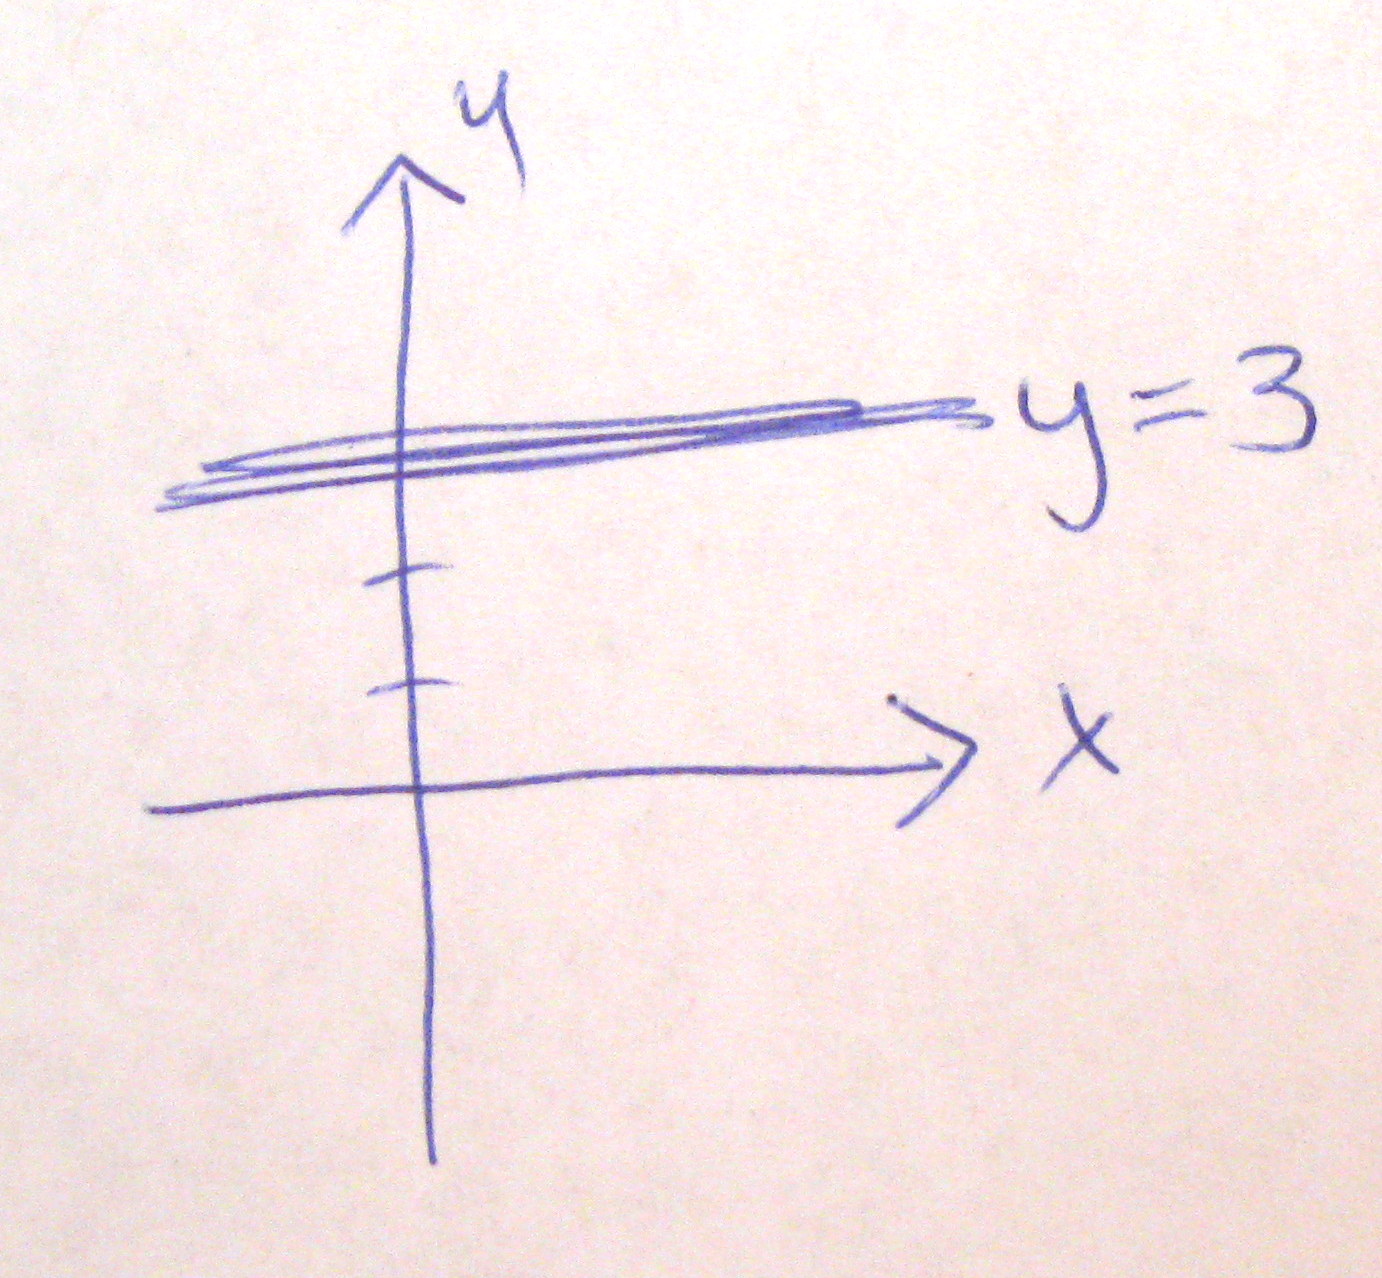 y
y=3
x